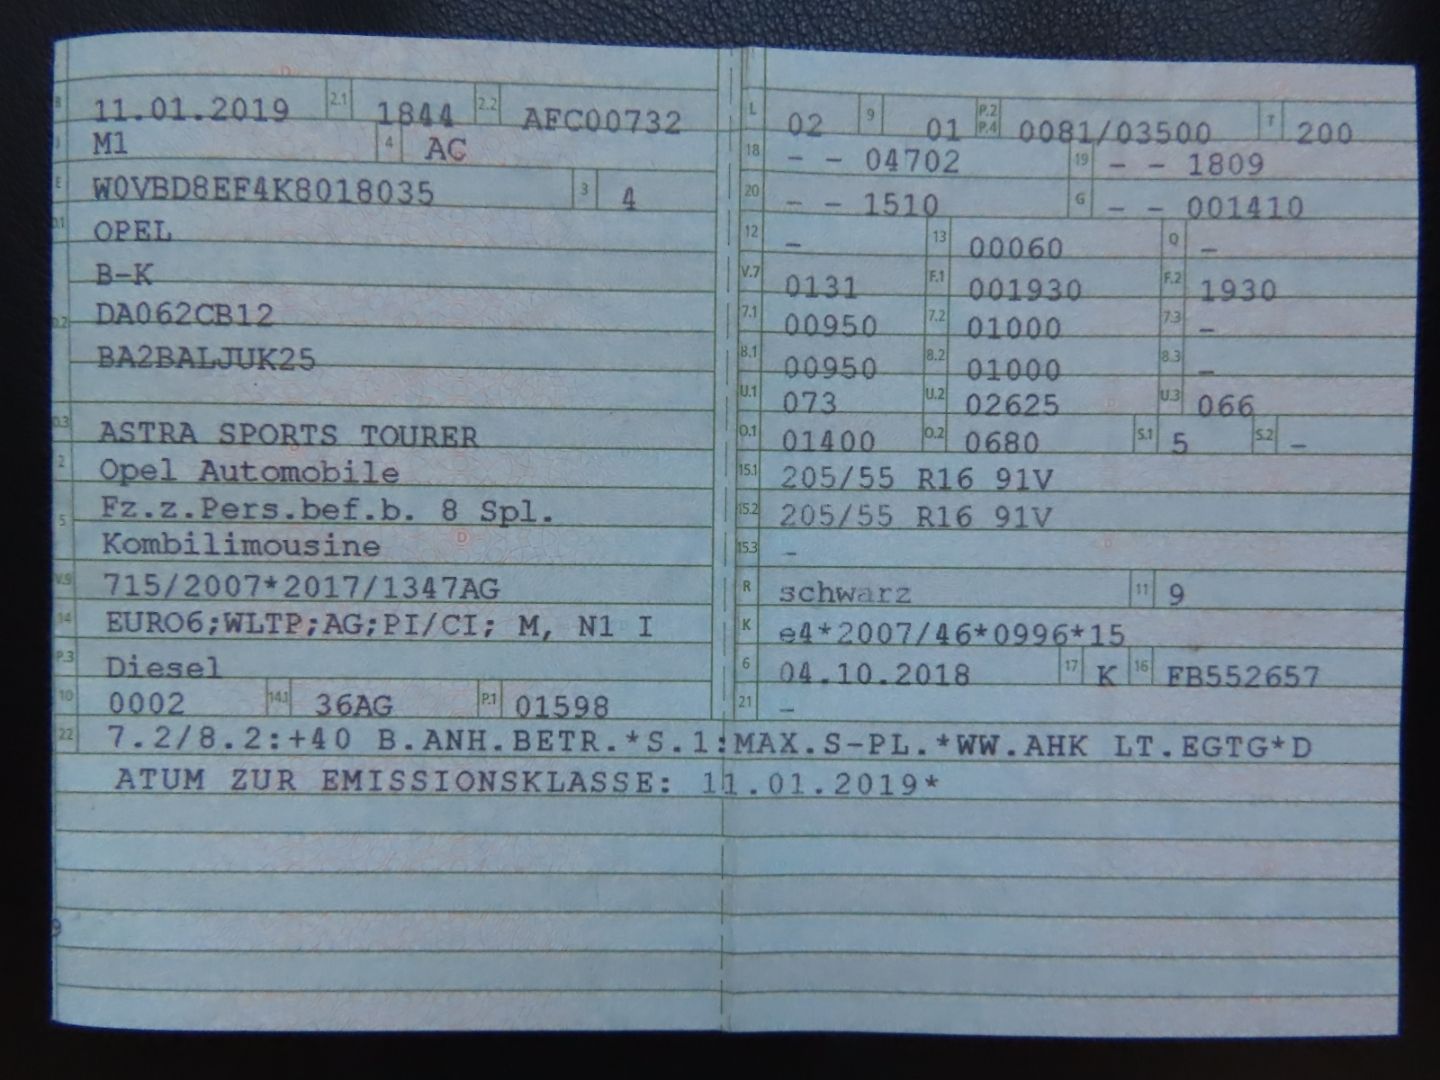 B 11.01.2019 2.1 1844 2.2 AFC00732
J M1 4 AC
E W0VBD8EF4K8018035 3 4
D.1 OPEL
B-K
D.2 DA062CB12
BA2BALJUK25
D.3 ASTRA SPORTS TOURER
2 Opel Automobile
5 Fz.z.Pers.bef.b. 8 Spl.
Kombilimousine
V.9 715/2007*2017/1347AG
14 EURO6;WLTP;AG;PI/CI; M, N1 I
P.3 Diesel
10 0002 14.1 36AG P.1 01598
L 02 9 01 P.2 P.4 0081/03500 T 200
18 - - 04702 19 - - 1809
20 - - 1510 G - - 001410
12 - 13 00060 Q -
V.7 0131 F.1 001930 F.2 1930
7.1 00950 7.2 01000 7.3 -
8.1 00950 8.2 01000 8.3 -
U.1 073 U.2 02625 U.3 066
O.1 01400 O.2 0680 S.1 5 S.2 -
15.1 205/55 R16 91V
15.2 205/55 R16 91V
15.3 -
R schwarz 11 9
K e4*2007/46*0996*15
6 04.10.2018 17 K 16 FB552657
21 -
22 7.2/8.2:+40 B.ANH.BETR.*S.1:MAX.S-PL.*WW.AHK LT.EGTG*D
ATUM ZUR EMISSIONSKLASSE: 11.01.2019*